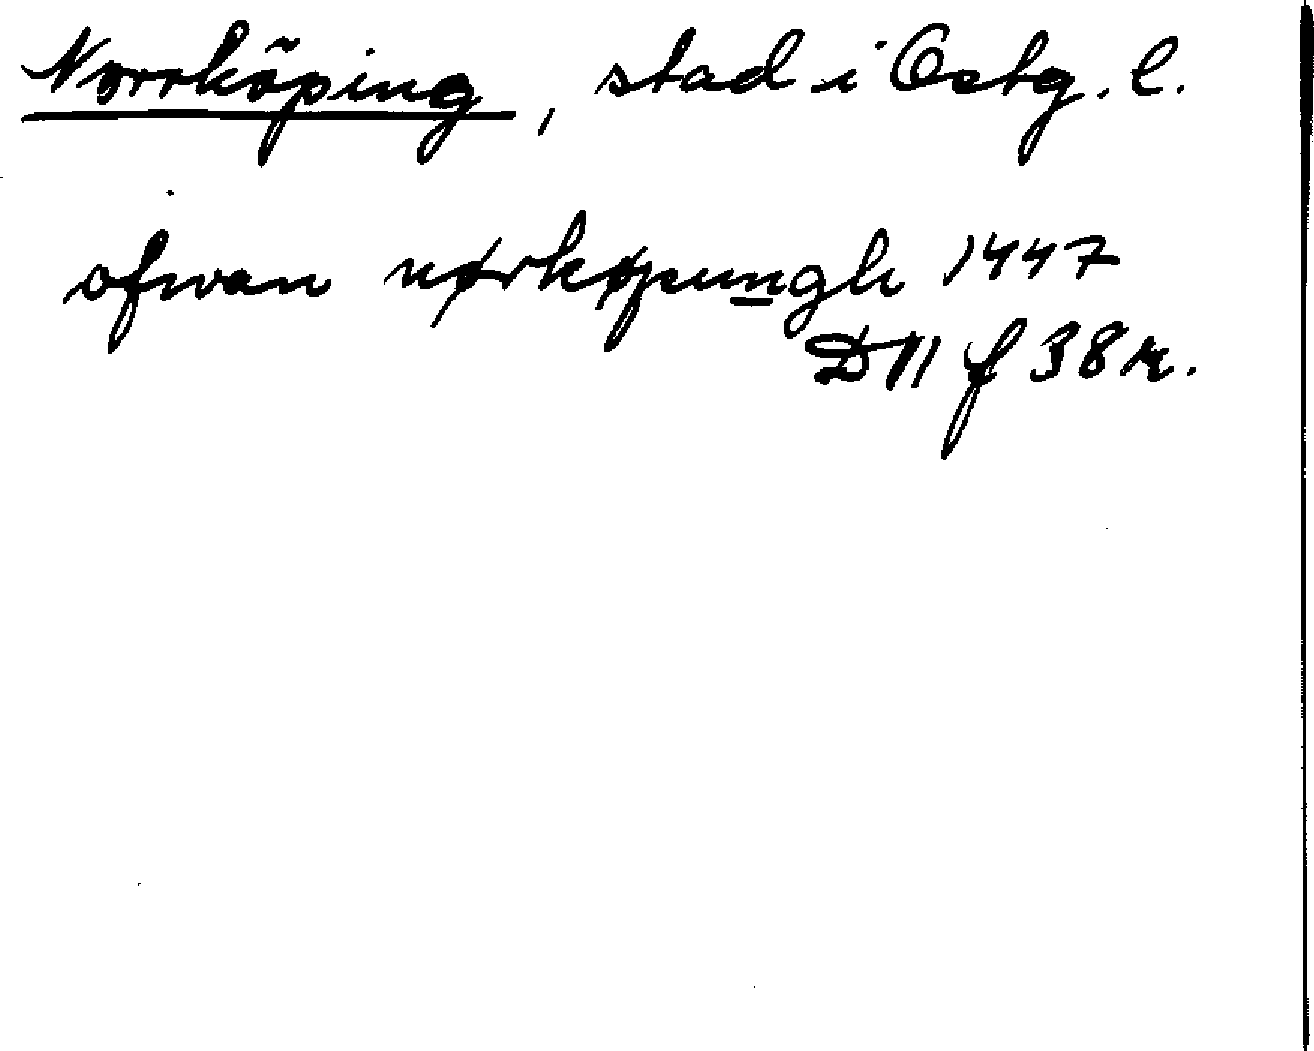 Norrköping, stad i Östg. l.
ofwan nørkøpungh 1447
D11 f 38 r.